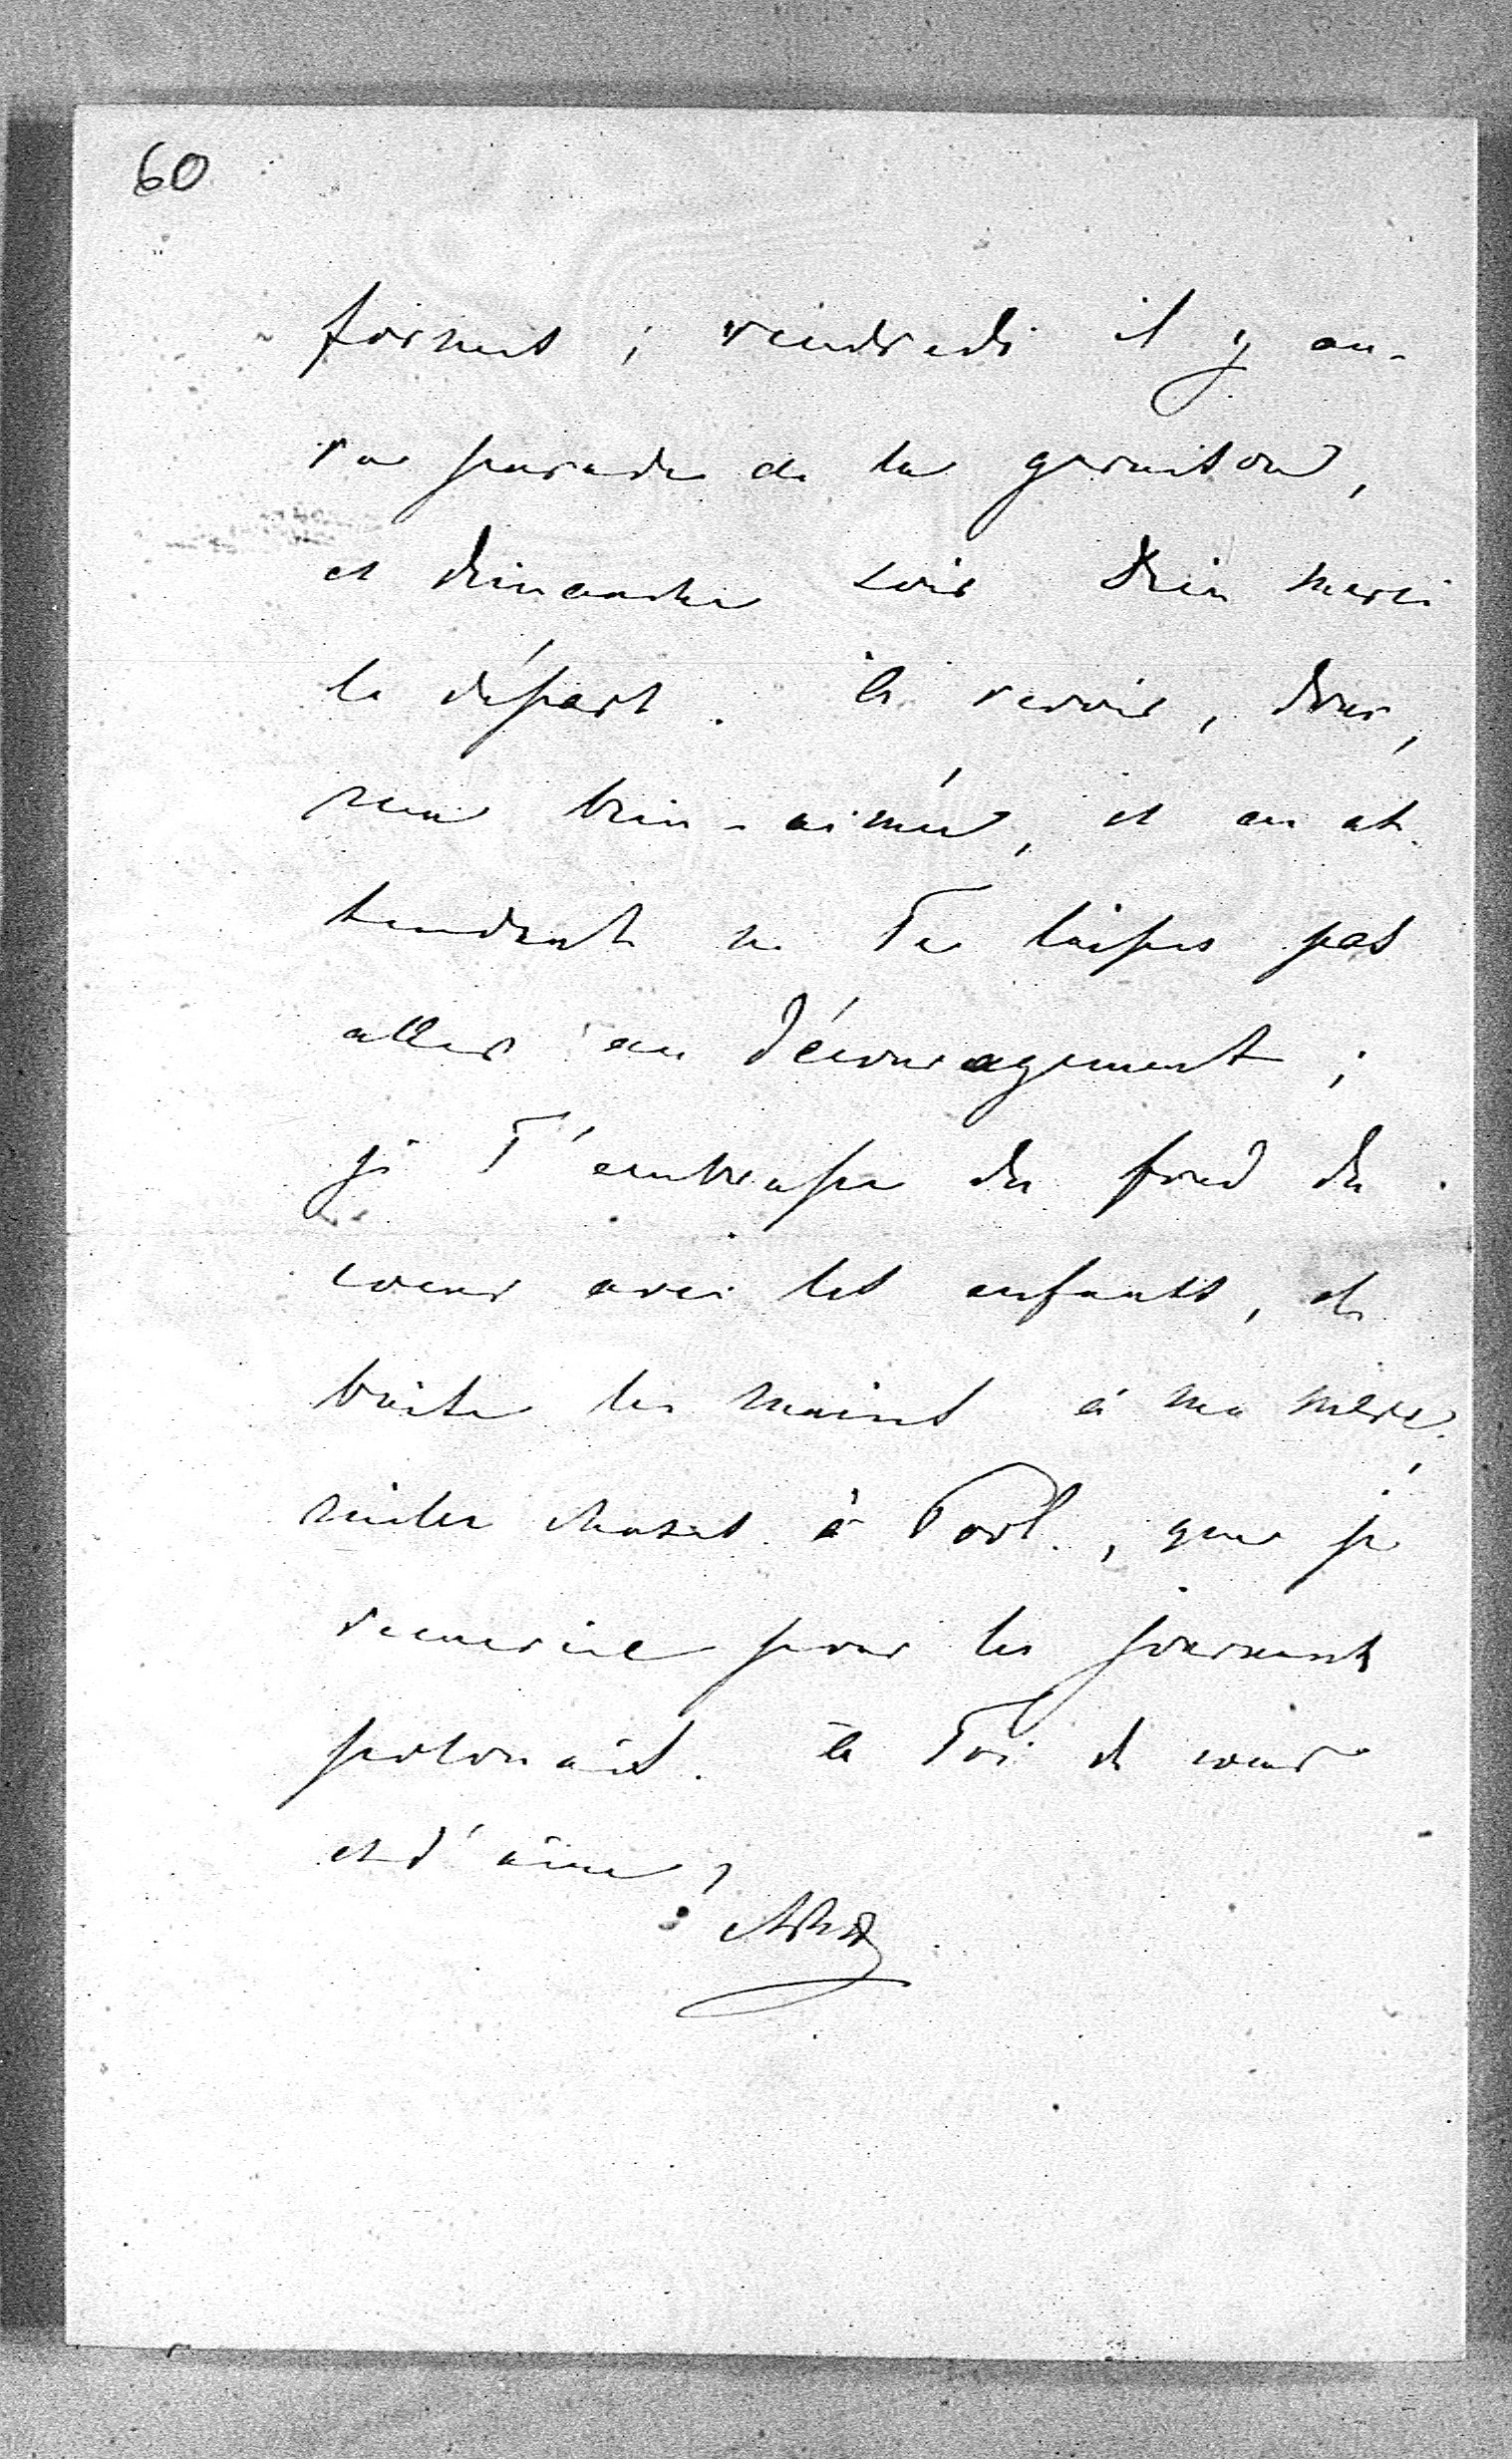 60
; vendredi il y au-
ra parade de la garnison,
et dimanche soir Dieu merci
le départ. A revoir, donc,
mon bien-aimée, et en at-
tendant ne Te laisses pas
aller au découragement ;
je T'embrasse du fond du
coeur avec les enfants, et
baise les mains à ma mère.
milles choses à Pool., que je
remercie pour les journaux
polonais. A Toi de coeur
et d'âme!